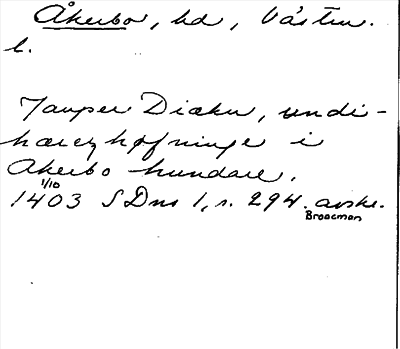 Åkerbo, hd, Västm.
l.
Jauper Diækn, undi-
hærezhøfninge i
Åkerbo hundare.
1/10
1403 SDns 1, s. 294. avskr.
Broocman